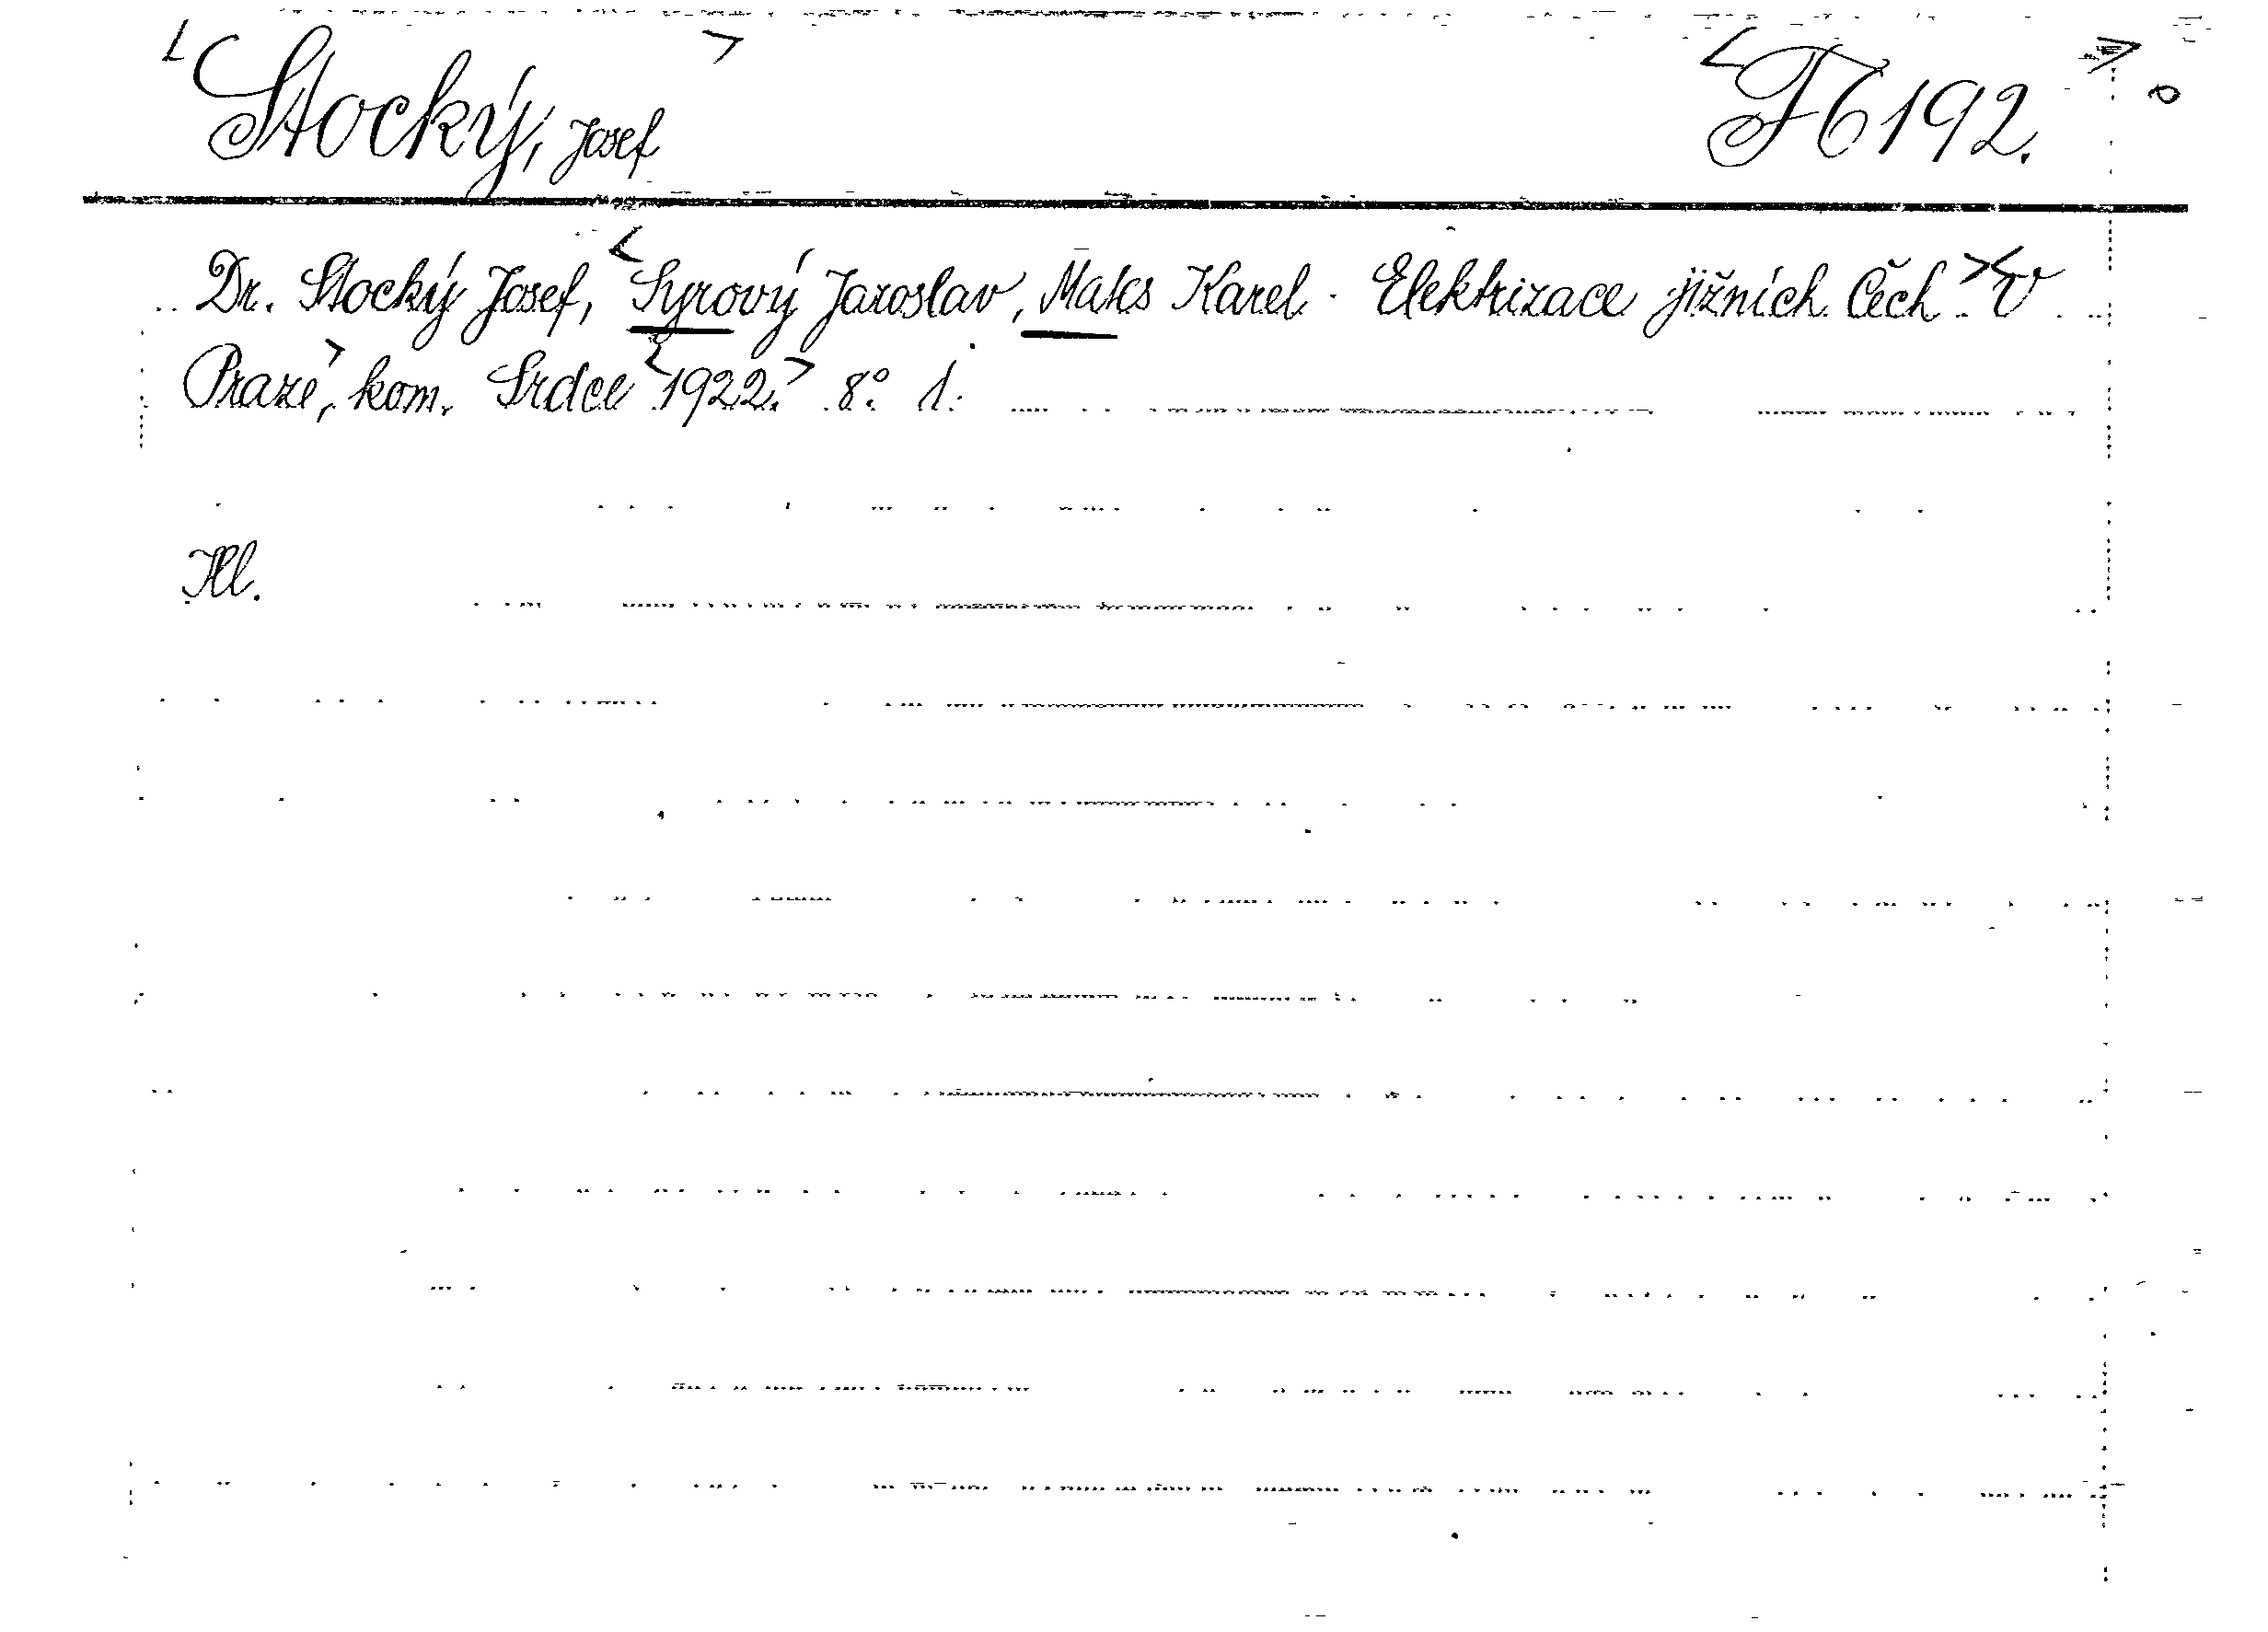 <Stocký, Josef> <F 6192.>
Dr. Stocký Josef, <Syrový Jaroslav, Maks Karel. Elektrizace jižních Čech.> <V
Praze>, kom. Srdce <1922.> 8° 1.
Ill.